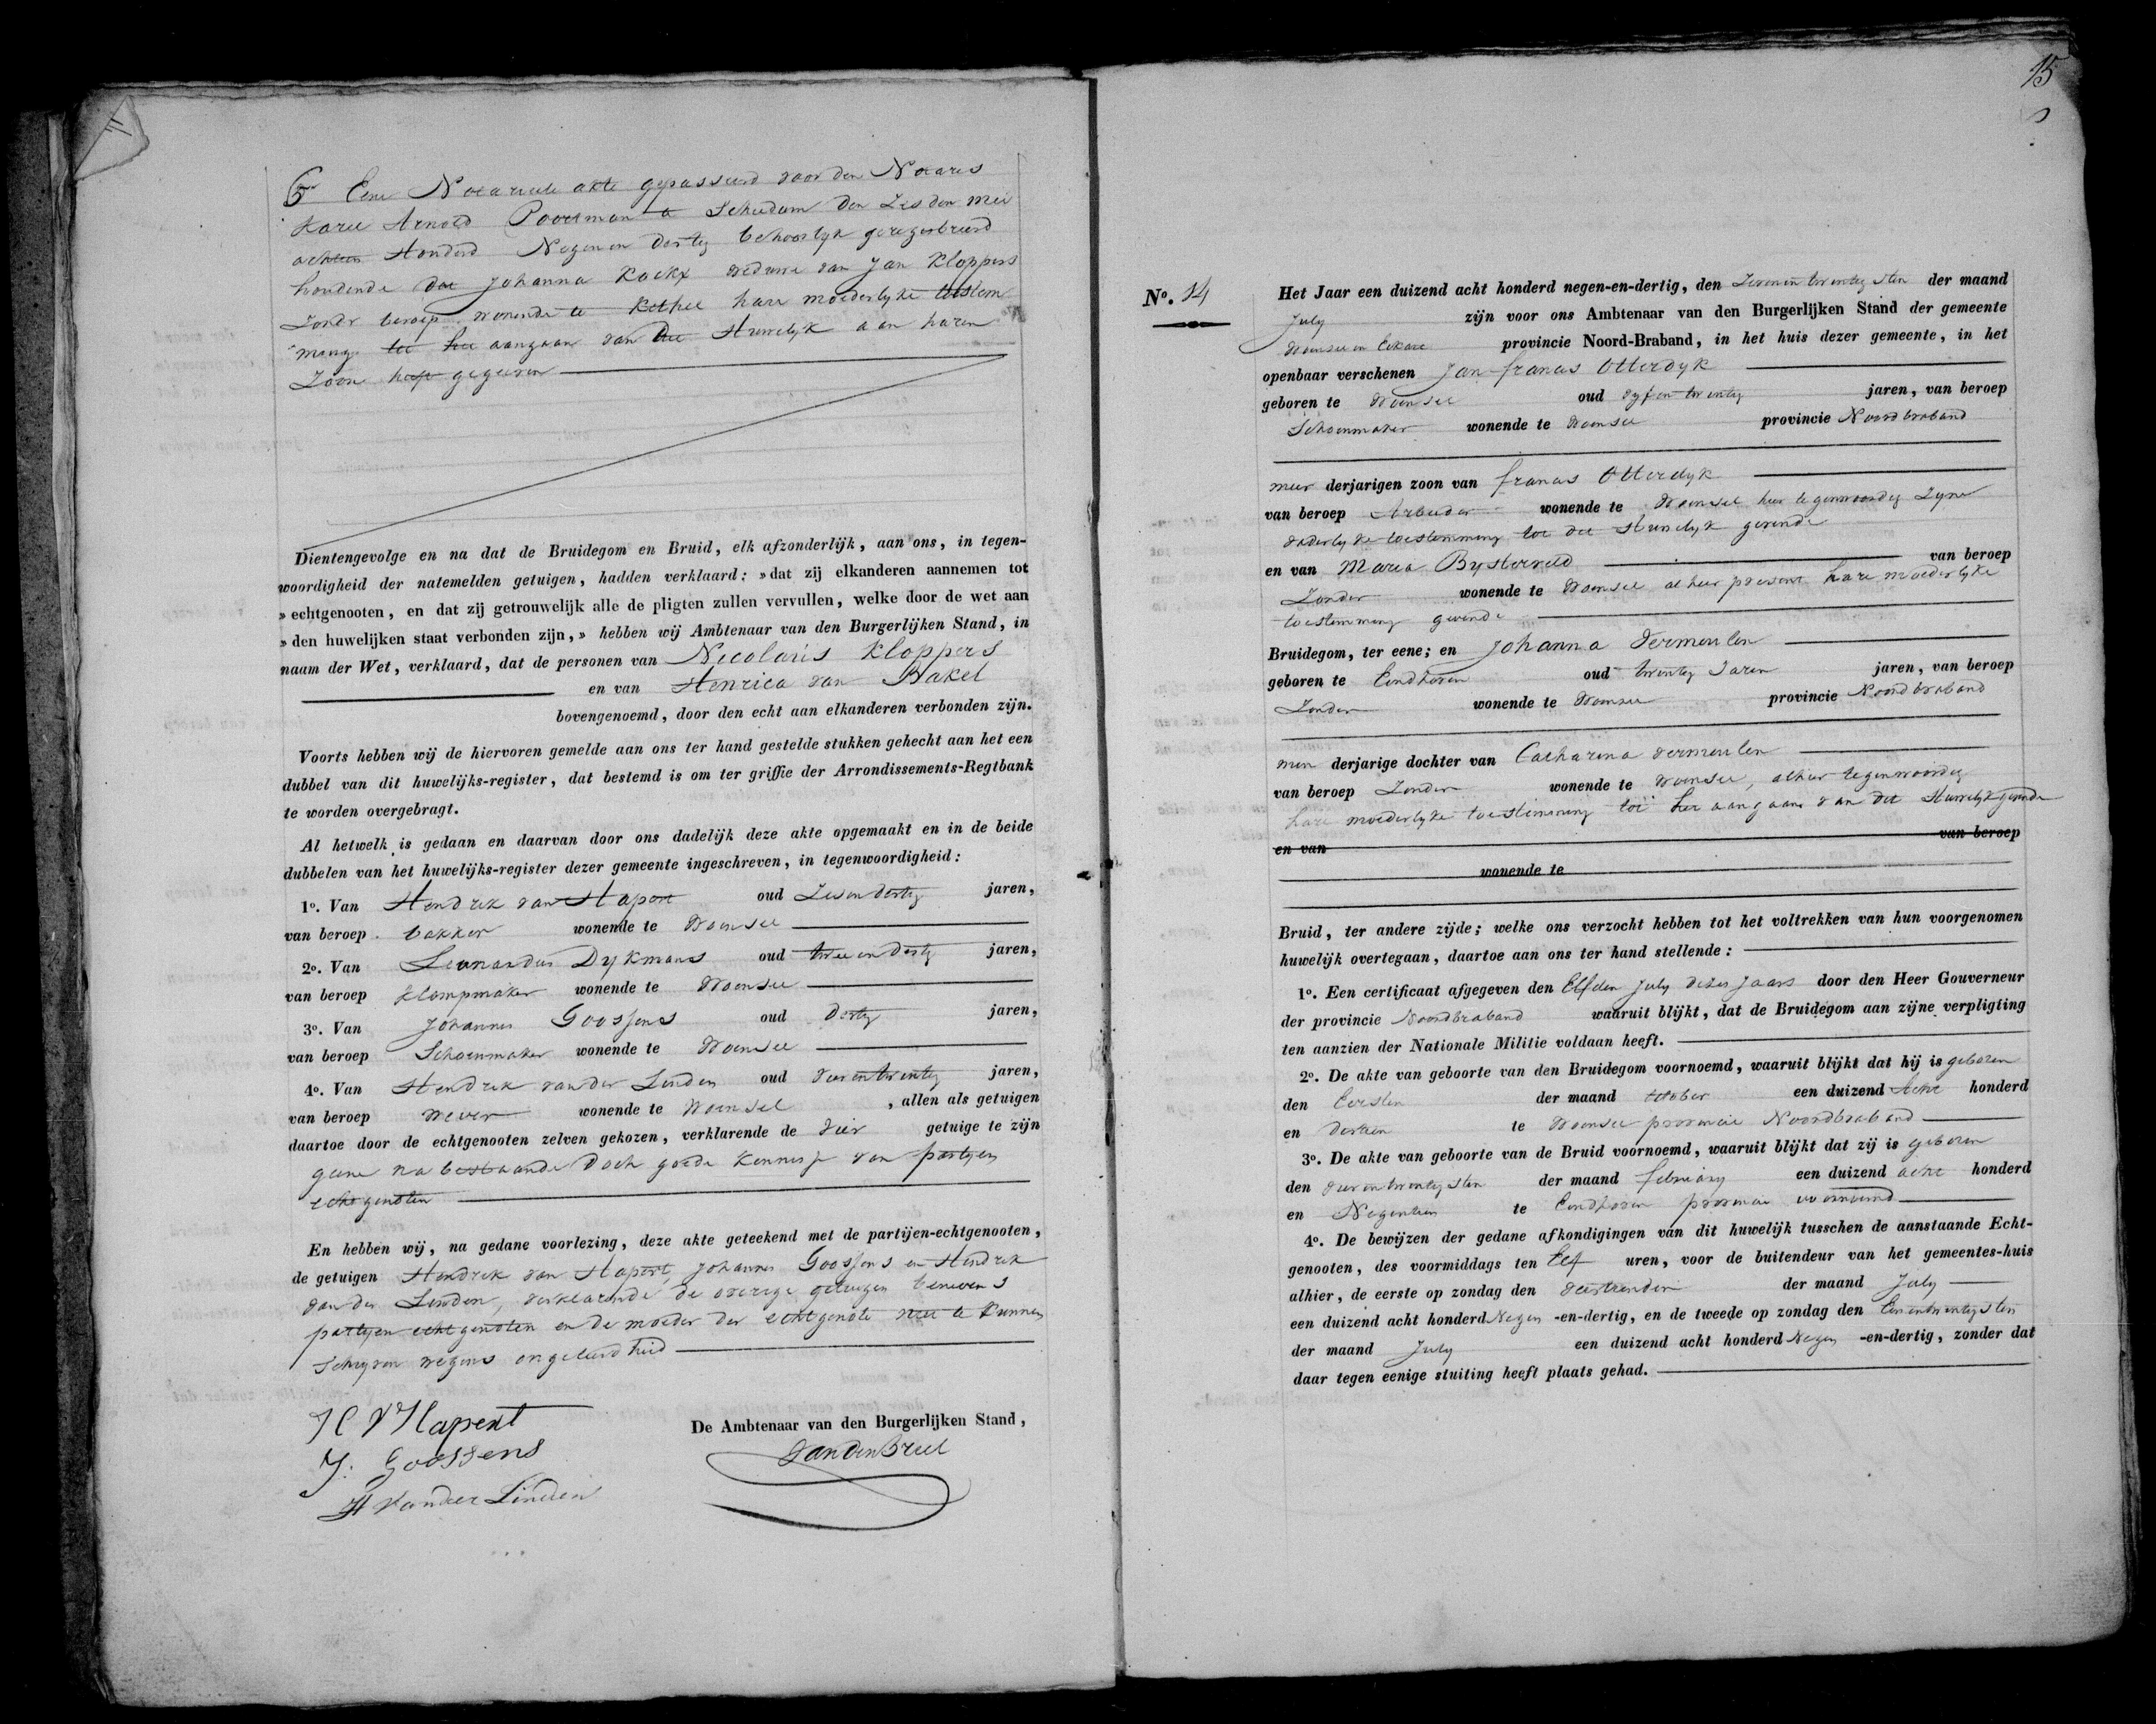 6o Eene Notarieele akte gepasseerd voor den Notaris
Karel Arnold Poortman te Schiedam den Zesden Mei
achtien Honderd Negen en Dertig behoorlyk geregistreerd
houdende dat Johanna Kockx weduwe van Jan Kloppers
Zondr beroep wonende te Kethel hare moederlyke toestem
ming tot het aangaan van dit Huwelyk aan haren
Zoon heeft gegeven
Dientengevolge en na dat de Bruidegom en Bruid, elk afzonderlijk, aan ons, in tegen-
woordigheid der natemelden getuigen, hadden verklaard: »dat zij elkanderen aannemen tot
»echtgenooten, en dat zij getrouwelijk alle de pligten zullen vervullen, welke door de wet aan
»den huwelijken staat verbonden zijn,» hebben wij Ambtenaar van den Burgerlijken Stand, in
naam der Wet, verklaard, dat de personen van Nicolaus Kloppers
en van Henrica van Bakel
bovengenoemd, door den echt aan elkanderen verbonden zijn.
Voorts hebben wij de hiervoren gemelde aan ons ter hand gestelde stukken gehecht aan het een
dubbel van dit huwelijks-register, dat bestemd is om ter griffie der Arrondissements-Regtbank
te worden overgebragt.
Al hetwelk is gedaan en daarvan door ons dadelijk deze akte opgemaakt en in de beide
dubbelen van het huwelijks-register dezer gemeente ingeschreven, in tegenwoordigheid:
1o. Van Hendrik van Hapert oud Zesendertig jaren,
van beroep bakker wonende te Woensel
2o. Van Leonardus Dykmans oud twee en dertig jaren,
van beroep Klompmaker wonende te Woensel
3o. Van Johannes Goossens oud Dertig jaren,
van beroep Schoenmaker wonende te Woensel
4o. Van Hendrik van der Linden oud vierentwintig jaren,
van beroep wever wonende te Woensel , allen als getuigen
daartoe door de echtgenooten zelven gekozen, verklarende de vier getuige te zijn
geene nabestaande Doch goede Kennisse van partyen
echtgenoten
En hebben wij, na gedane voorlezing, deze akte geteekend met de partijen-echtgenooten,
de getuigen Hendrik van Hapert, Johannes Goossens en Hendrik
van der Linden, verklarende de overige getuigen benevens
partyen echtgenoten en de moeder der echtgenote niet te Kunnen
Schryven wegens ongeleerdheid
H V Hapert
J. Goossens
H Vander Linden
De Ambtenaar van den Burgerlijken Stand,
VandenBreel
15
No. 14
Het Jaar een duizend acht honderd negen-en-dertig, den Zevenentwintigsten der maand
July zijn voor ons Ambtenaar van den Burgerlijken Stand der gemeente
Woensel en Eckart provincie Noord-Braband, in het huis dezer gemeente, in het
openbaar verschenen Jan francis Otterdyk
geboren te Woensel oud vyfentwintig jaren, van beroep
Schoenmaker wonende te Woensel provincie Noordbraband
meer derjarigen zoon van francis Otterdyk
van beroep Arbeider wonende te Woensel hier tegenwoordig Zyne
vaderlyke toestemming tot dit Huwelyk gevende
en van Maria Bysterveld van beroep
Zonder wonende te Woensel alhier present hare moederlyke
toestemming gevende
Bruidegom, ter eene; en Johanna Vermeulen
geboren te Eindhoven oud twintig Jaren jaren, van beroep
Zonder wonende te Woensel provincie Noordbraband
min derjarige dochter van Catharina Vermeulen
van beroep Zonder wonende te Woensel, alhier tegenwoordig
hare moederlyke toestemming tot het aangaan van dit Huwelyk gevende
en van van beroep
wonende te
Bruid, ter andere zijde; welke ons verzocht hebben tot het voltrekken van hun voorgenomen
huwelijk overtegaan, daartoe aan ons ter hand stellende:
1o. Een certificaat afgegeven den Elfden July dezes jaars door den Heer Gouverneur
der provincie Noordbraband waaruit blijkt, dat de Bruidegom aan zijne verpligting
ten aanzien der Nationale Militie voldaan heeft.
2o. De akte van geboorte van den Bruidegom voornoemd, waaruit blijkt dat hij is geboren
den Eersten der maand October een duizend Acht honderd
en Dertien te Woensel provincie Noordbraband
3o. De akte van geboorte van de Bruid voornoemd, waaruit blijkt dat zij is geboren
den vierentwintigsten der maand february een duizend acht honderd
en Negentien te Eindhoven provincie voornoemd
4o. De bewijzen der gedane afkondigingen van dit huwelijk tusschen de aanstaande Echt-
genooten, des voormiddags ten Elf uren, voor de buitendeur van het gemeentes-huis
alhier, de eerste op zondag den veertienden der maand July
een duizend acht honderd Negen -en-dertig, en de tweede op zondag den Eenentwintigsten
der maand July een duizend acht honderd Negen -en-dertig, zonder dat
daar tegen eenige stuiting heeft plaats gehad.